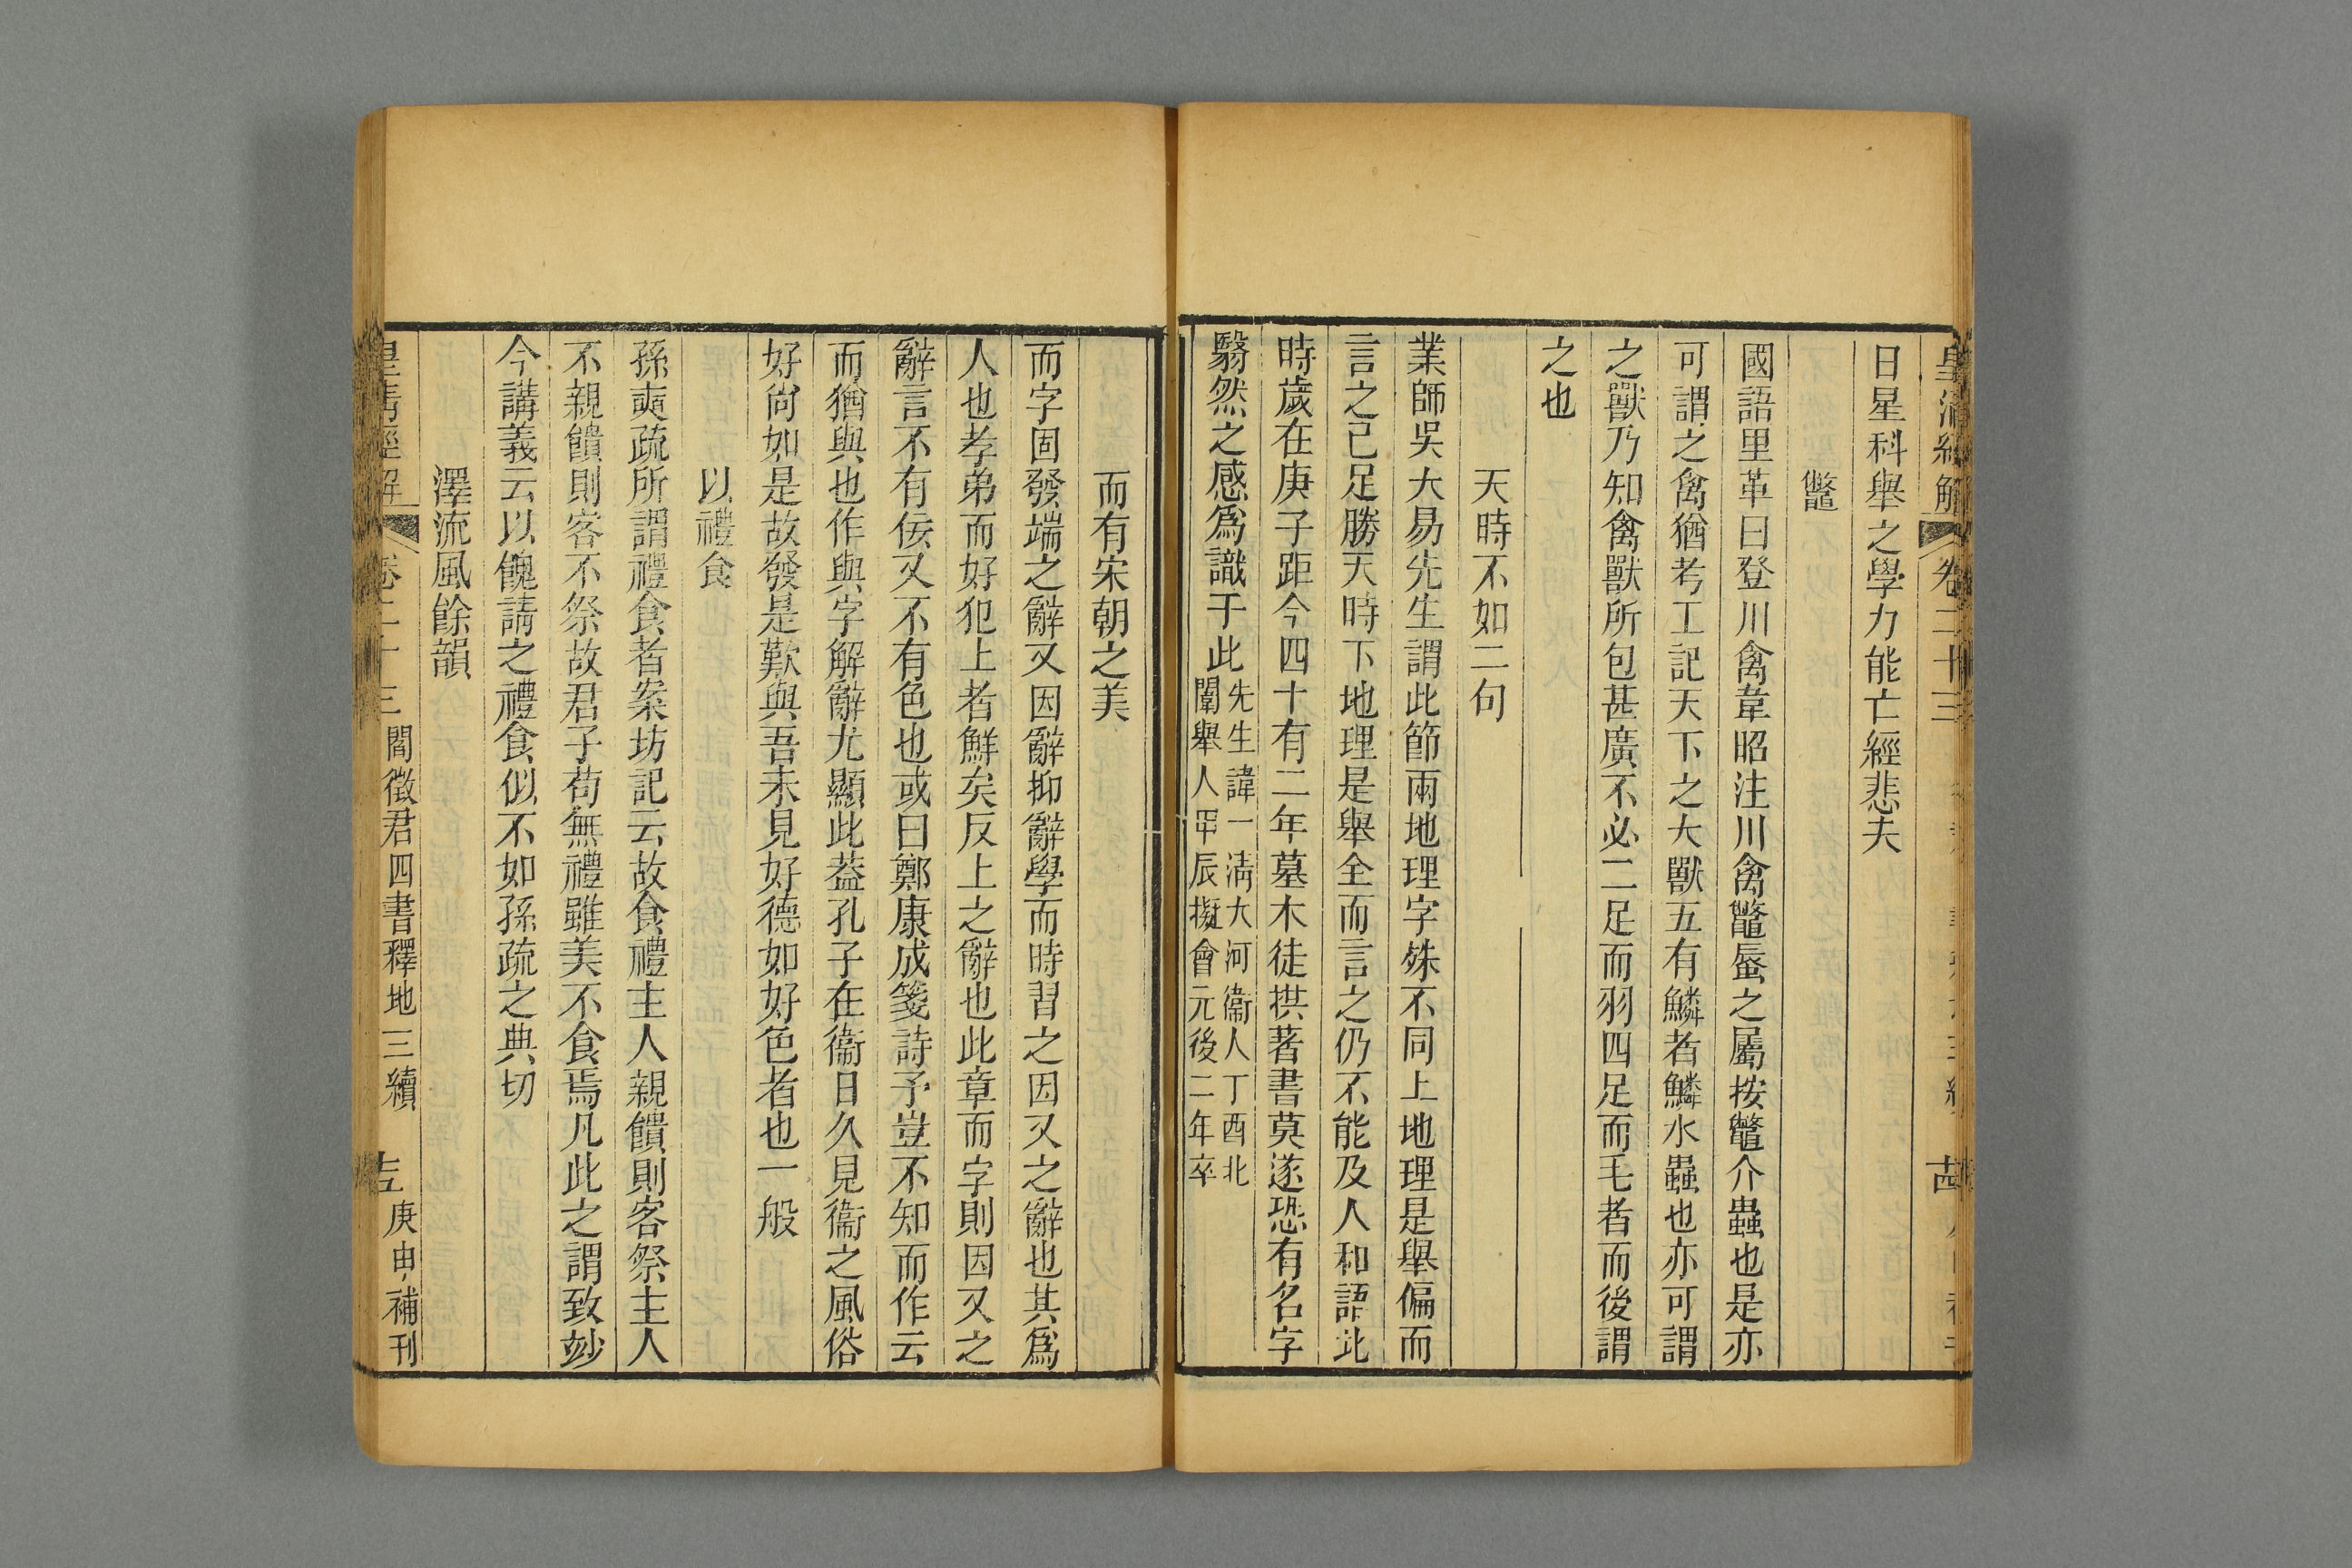 皇清經解 卷二十三
日星科舉之學力能亡經悲夫
鼈
國語里革曰登川禽韋昭注川禽鼈蜃之屬按鼈介蟲也是亦
可謂之禽猶考工記天下之大獸五有鱗者鱗水蟲也亦可謂
之獸乃知禽獸所包甚廣不必二足而羽四足而毛者而後謂
之也
天時不如二句
業師吳大易先生謂此節兩地理字殊不同上地理是舉偏而
言之已足勝天時下地理是舉全而言之仍不能及人和語此
時歲在庚子距今四十有二年墓木徒拱著書莫遂恐有名字
翳然之感爲識于此先生諱一淸大河衞人丁酉北
闈舉人甲辰擬會元後二年卒
而有宋朝之美
而字固發端之辭又因辭抑辭學而時習之因又之辭也其爲
人也孝弟而好犯上者鮮矣反上之辭也此章而字則因又之
辭言不有佞又不有色也或曰鄭康成箋詩予豈不知而作云
而猶與也作與字解辭尤顯此葢孔子在衞日久見衞之風俗
好尙如是故發是歎與吾未見好德如好色者也一般
以禮食
孫奭疏所謂禮食者案坊記云故食禮主人親饋則客祭主人
不親饋則客不祭故君子苟無禮雖美不食焉凡此之謂致竗
今講義云以餽請之禮食似不如孫疏之典切
澤流風餘韻
皇淸經解 卷二十三 閻徵君四書釋地三續 十五 庚申補刊